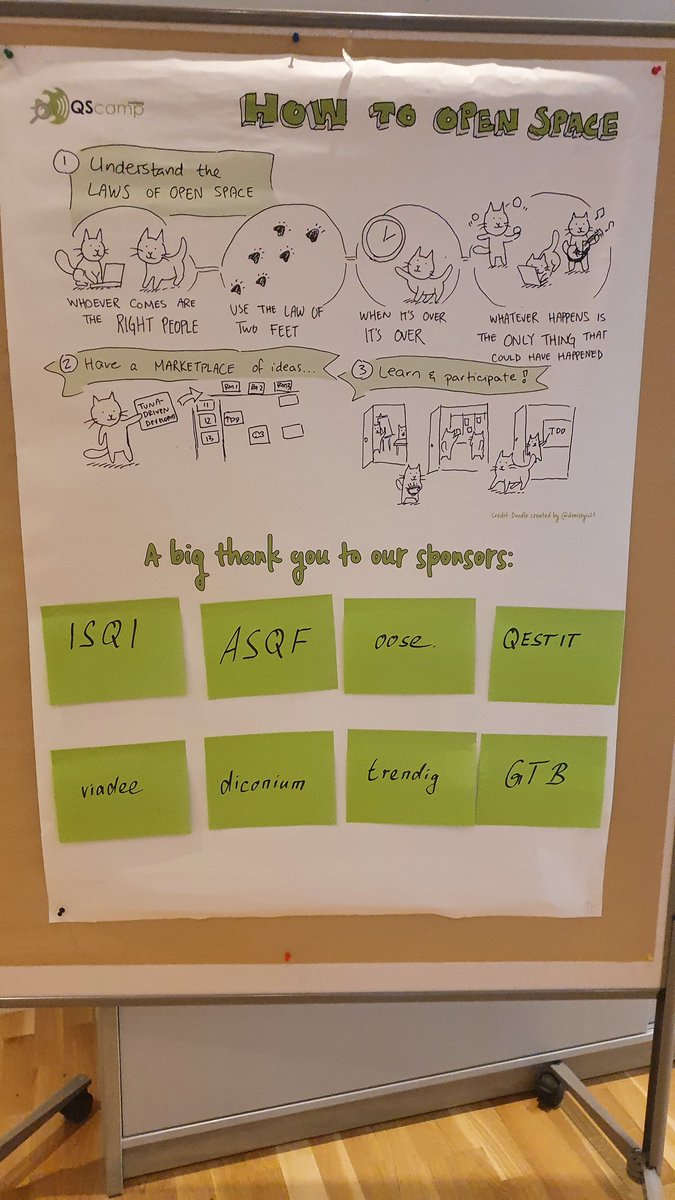 QScamp
HOW TO OPEN SPACE
1 Understand the
LAWS OF OPEN SPACE
WHOEVER COMES ARE
THE RIGHT PEOPLE
USE THE LAW OF
TWO FEET
WHEN IT'S OVER
IT'S OVER
WHATEVER HAPPENS IS
THE ONLY THING THAT
COULD HAVE HAPPENED
2 Have a MARKETPLACE of ideas...
TUNA-
DRIVEN
DEVELOPM
RM1 RM2 RM3
11
12
13
TDD
3 Learn & participate!
TDD
Credit: Doodle created by @deniseyu21
A big thank you to our sponsors:
ISQI
ASQF
oose.
QESTIT
viadee
diconium
trendig
GTB